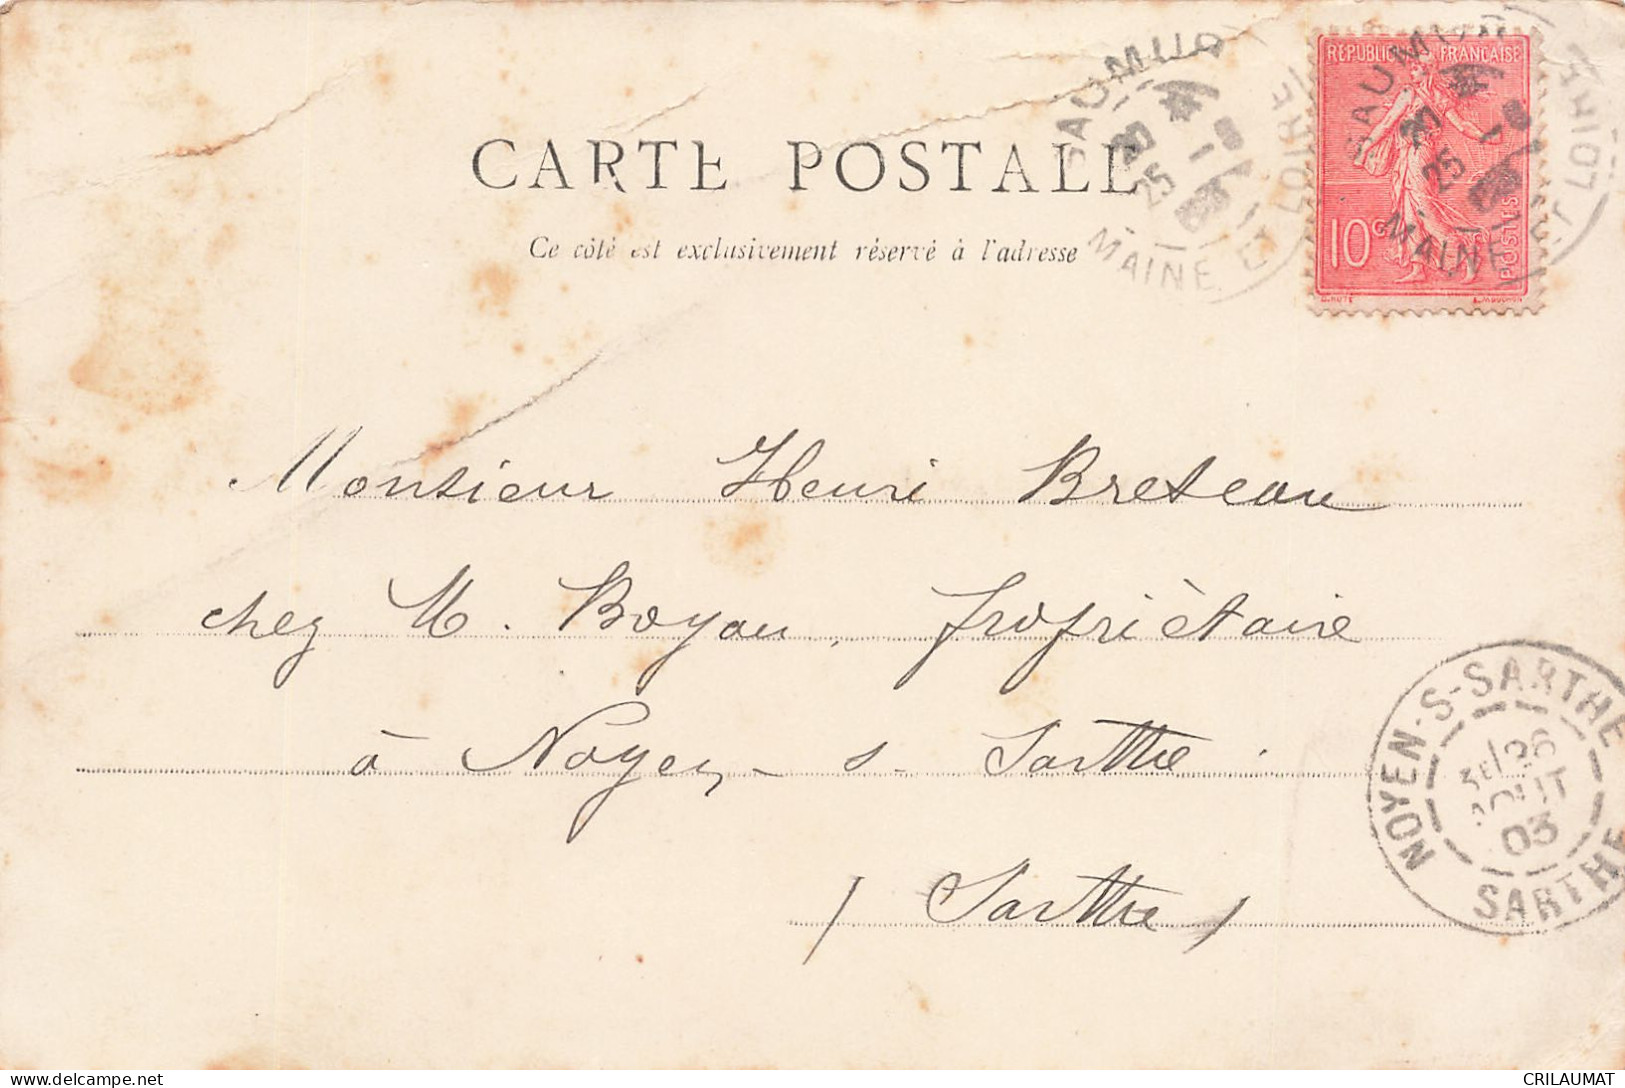 CARTE POSTALE
Ce côté est exclusivement réservé à l'adresse
RÉPUBLIQUE FRANÇAISE
10 c
POSTES
O. ROTY
L. MOUCHON
SAUMUR
25
MAINE ET LOIRE
SAUMUR
25
MAINE ET LOIRE
Monsieur Henri Breteau
chez M. Boyau, propriètaire
à Noyen - s - Sarthe
( Sarthe )
NOYEN-S-SARTHE
3E 26
AOUT
03
SARTHE
delcampe.net
CRILAUMAT